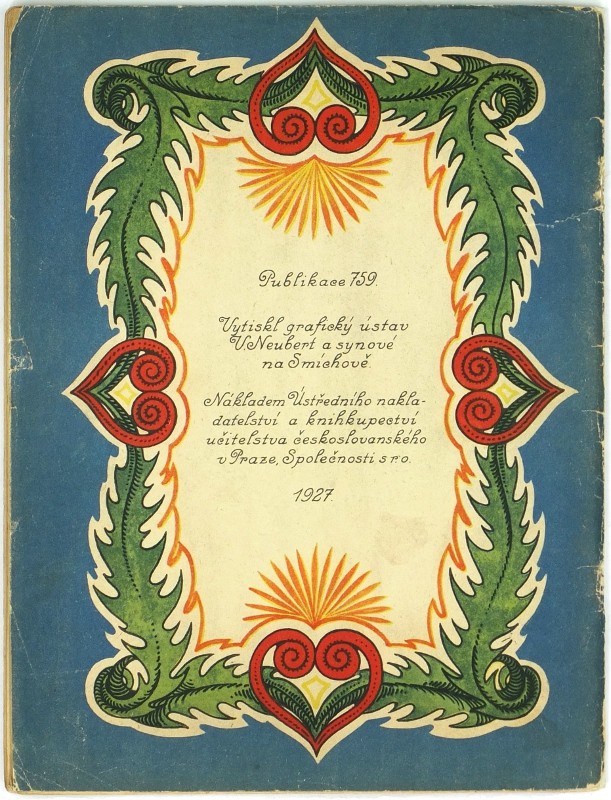 Publikace 759.
Vytiskl grafický ústav
V. Neubert a synové
na Smíchově.
Nákladem Ústředního nakla-
datelství a knihkupectví
učitelstva českoslovanského
v Praze, Společnosti s r.o.
1927.